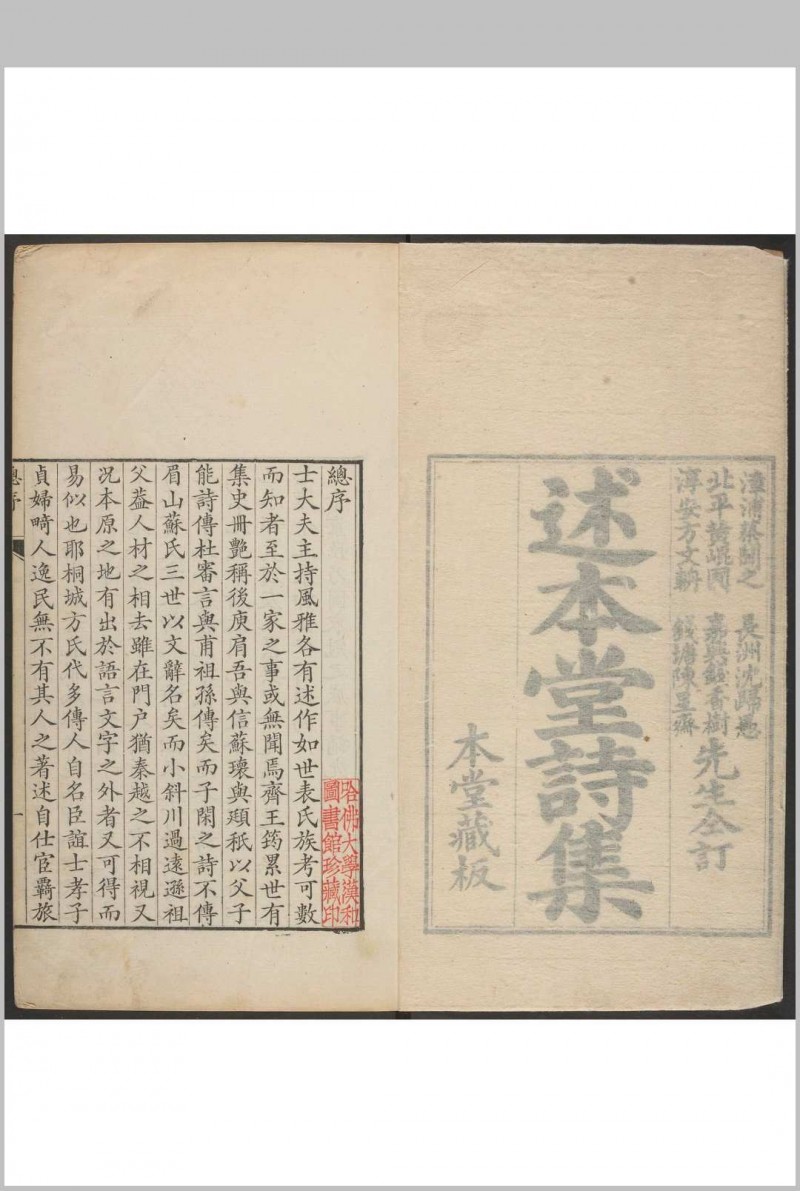 漳浦蔡聞之
北平黄崐圃
淳安方文輈
長洲沈歸愚
嘉興錢香樹
錢塘陳星齋
先生仝訂
述本堂詩集
本堂藏板
總序
士大夫主持風雅各有述作如世表氏族考可數
而知者至於一家之事或無聞焉齊王筠累世有
集史冊艷稱後庾肩吾與信蘇瓌與頲秖以父子
能詩傳杜審言與甫祖孫傳矣而子閑之詩不傳
眉山蘇氏三世以文辭名矣而小斜川過遠遜祖
父葢人材之相去雖在門户猶秦越之不相視又
况本原之地有出於語言文字之外者又可得而
易似也耶桐城方氏代多傳人自名臣誼士孝子
貞婦畸人逸民無不有其人之著述自仕宦覊旅
總序
一
哈佛大學漢和
圖書館珍藏印